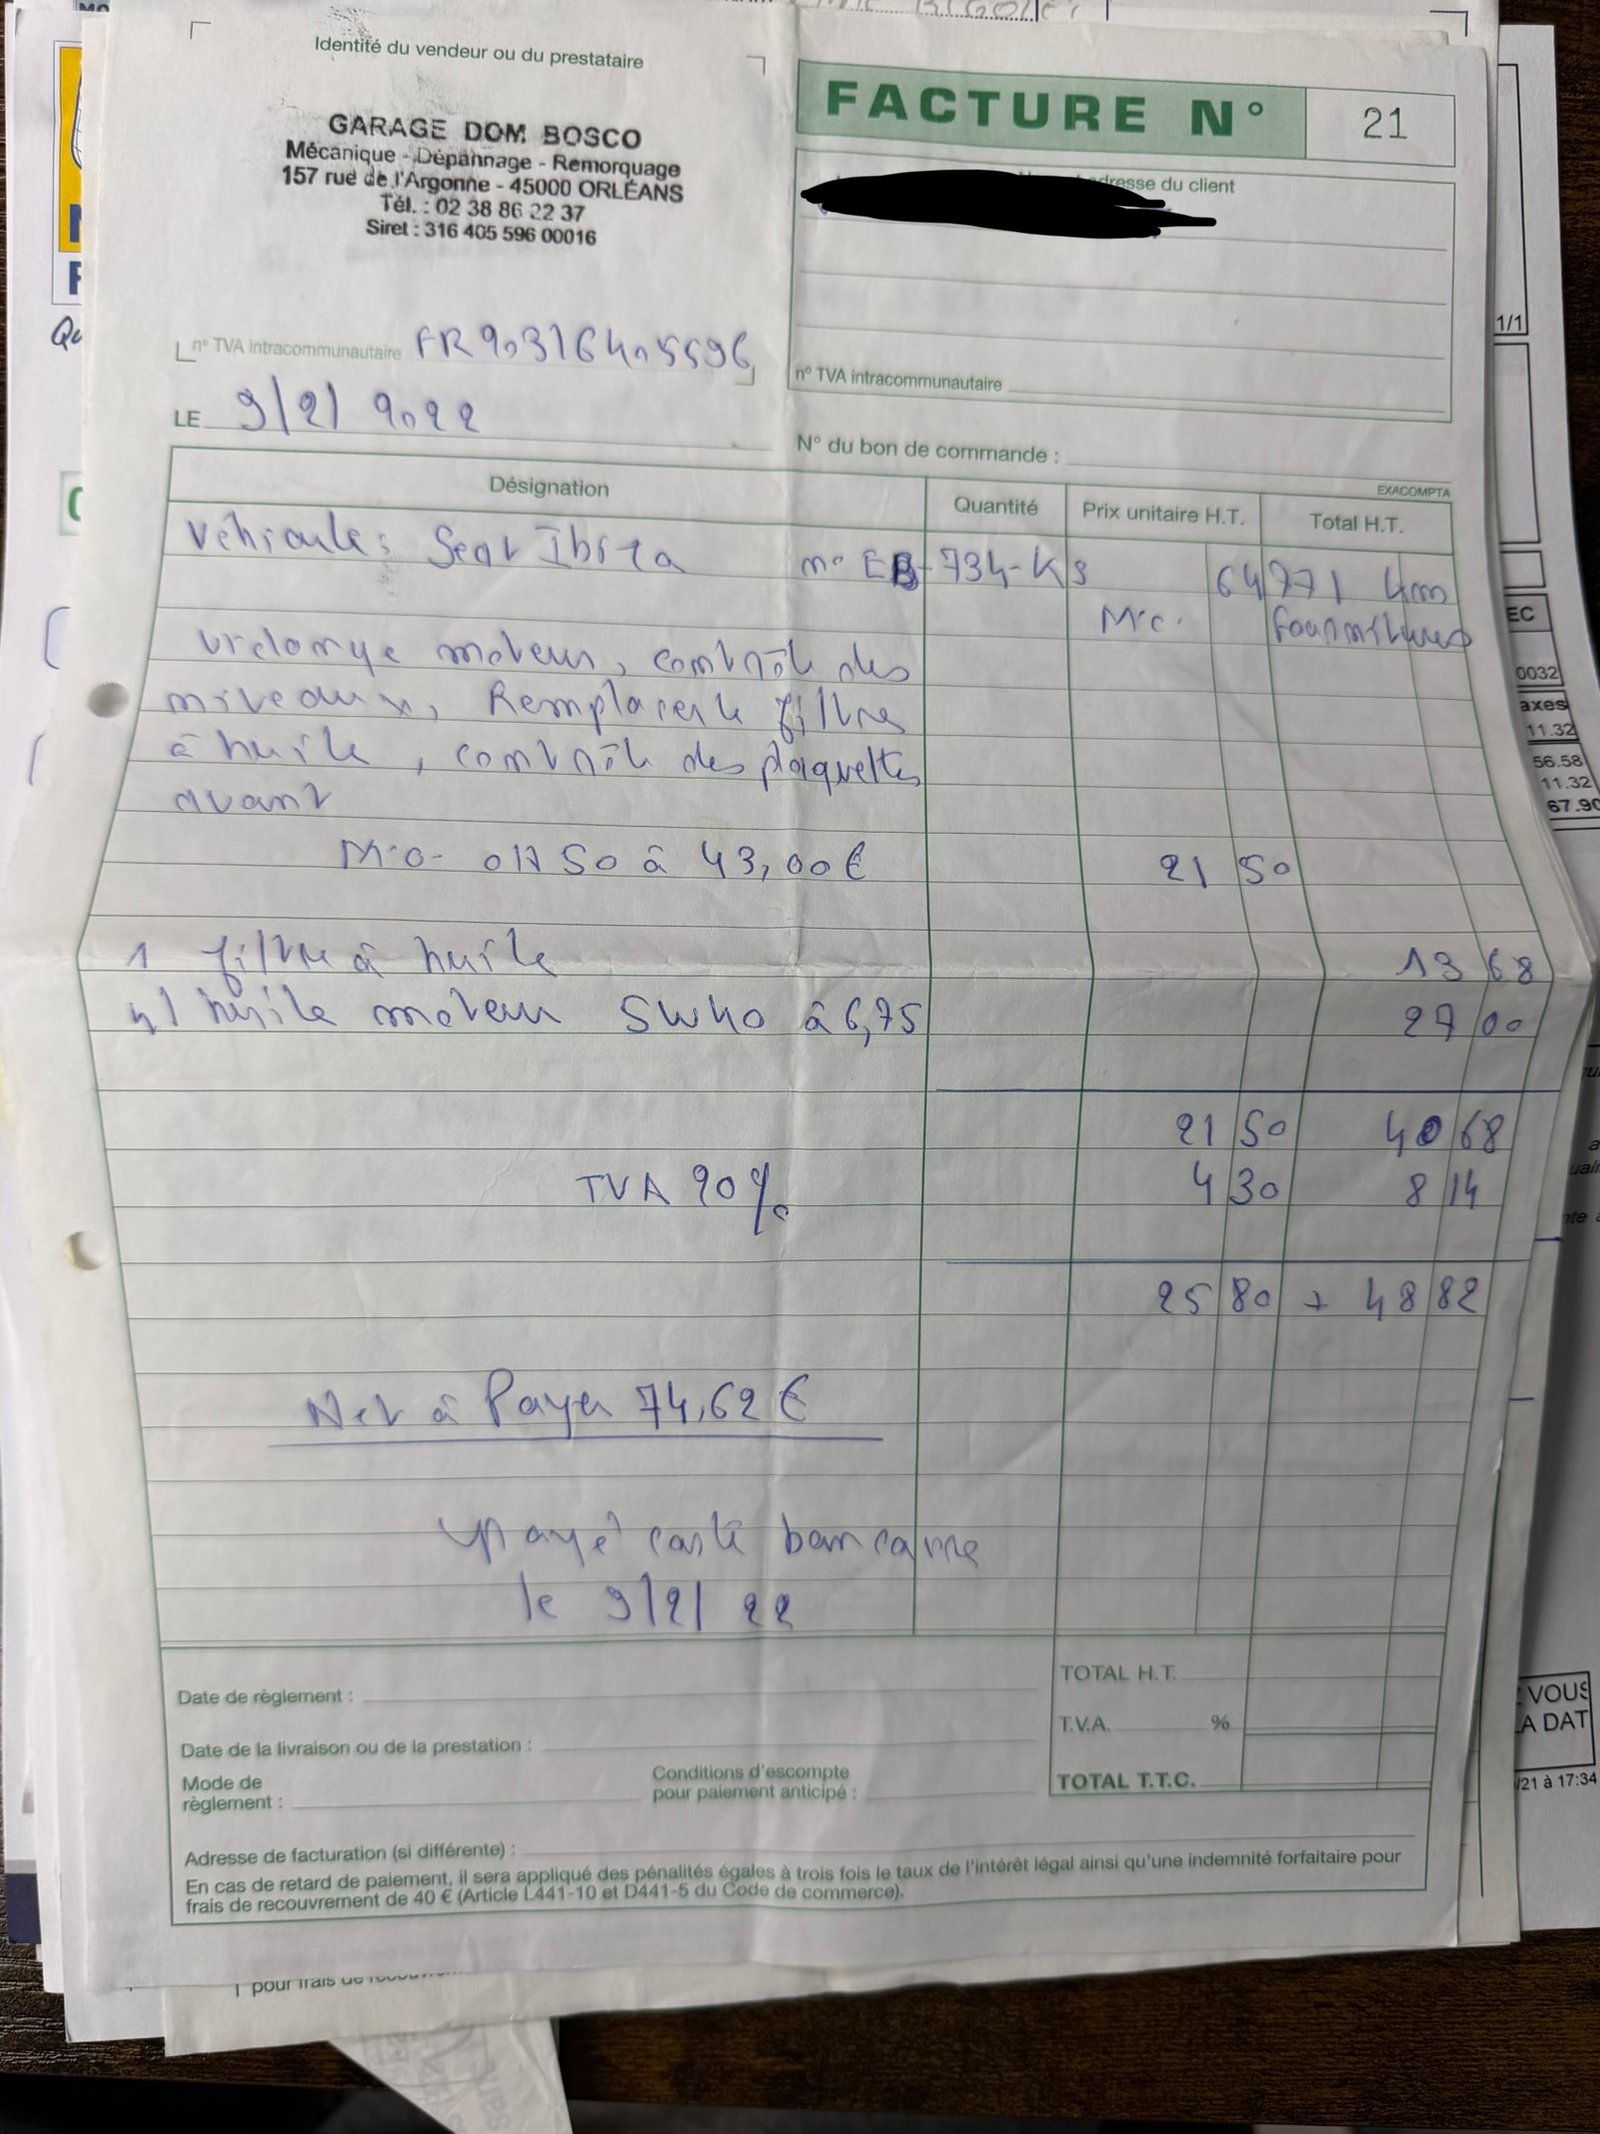 Identité du vendeur ou du prestataire
GARAGE DOM BOSCO
Mécanique - Dépannage - Remorquage
157 rue de l'Argonne - 45000 ORLÉANS
Tél. : 02 38 86 22 37
Siret : 316 405 596 00016
FACTURE N° 21
adresse du client
n° TVA intracommunautaire FR90316405596
n° TVA intracommunautaire
LE 9/2/2022
N° du bon de commande :
EXACOMPTA
Désignation Quantité Prix unitaire H.T. Total H.T.
Véhicule : Seat Ibiza n° EB-734-KS 64771 km
M.O. Fournitures
vidange moteur, contrôle des
niveaux, Remplacer le filtre
à huile, contrôle des plaquettes
avant
M.O. 0H50 à 43,00€ 21 50
1 filtre à huile 13 68
4l huile moteur 5W40 à 6,75 27 00
21 50 40 68
TVA 20% 4 30 8 14
25 80 + 48 82
Net à Payer 74,62 €
payé carte bancaire
le 9/2/22
Date de règlement :
Date de la livraison ou de la prestation :
Mode de
règlement :
Conditions d'escompte
pour paiement anticipé :
TOTAL H.T.
T.V.A. %
TOTAL T.T.C.
Adresse de facturation (si différente) :
En cas de retard de paiement, il sera appliqué des pénalités égales à trois fois le taux de l'intérêt légal ainsi qu'une indemnité forfaitaire pour
frais de recouvrement de 40 € (Article L441-10 et D441-5 du Code de commerce).
1/1
0032
11.32
56.58
11.32
67.90
VOUS
LA DAT
/21 à 17:34
pour frais de